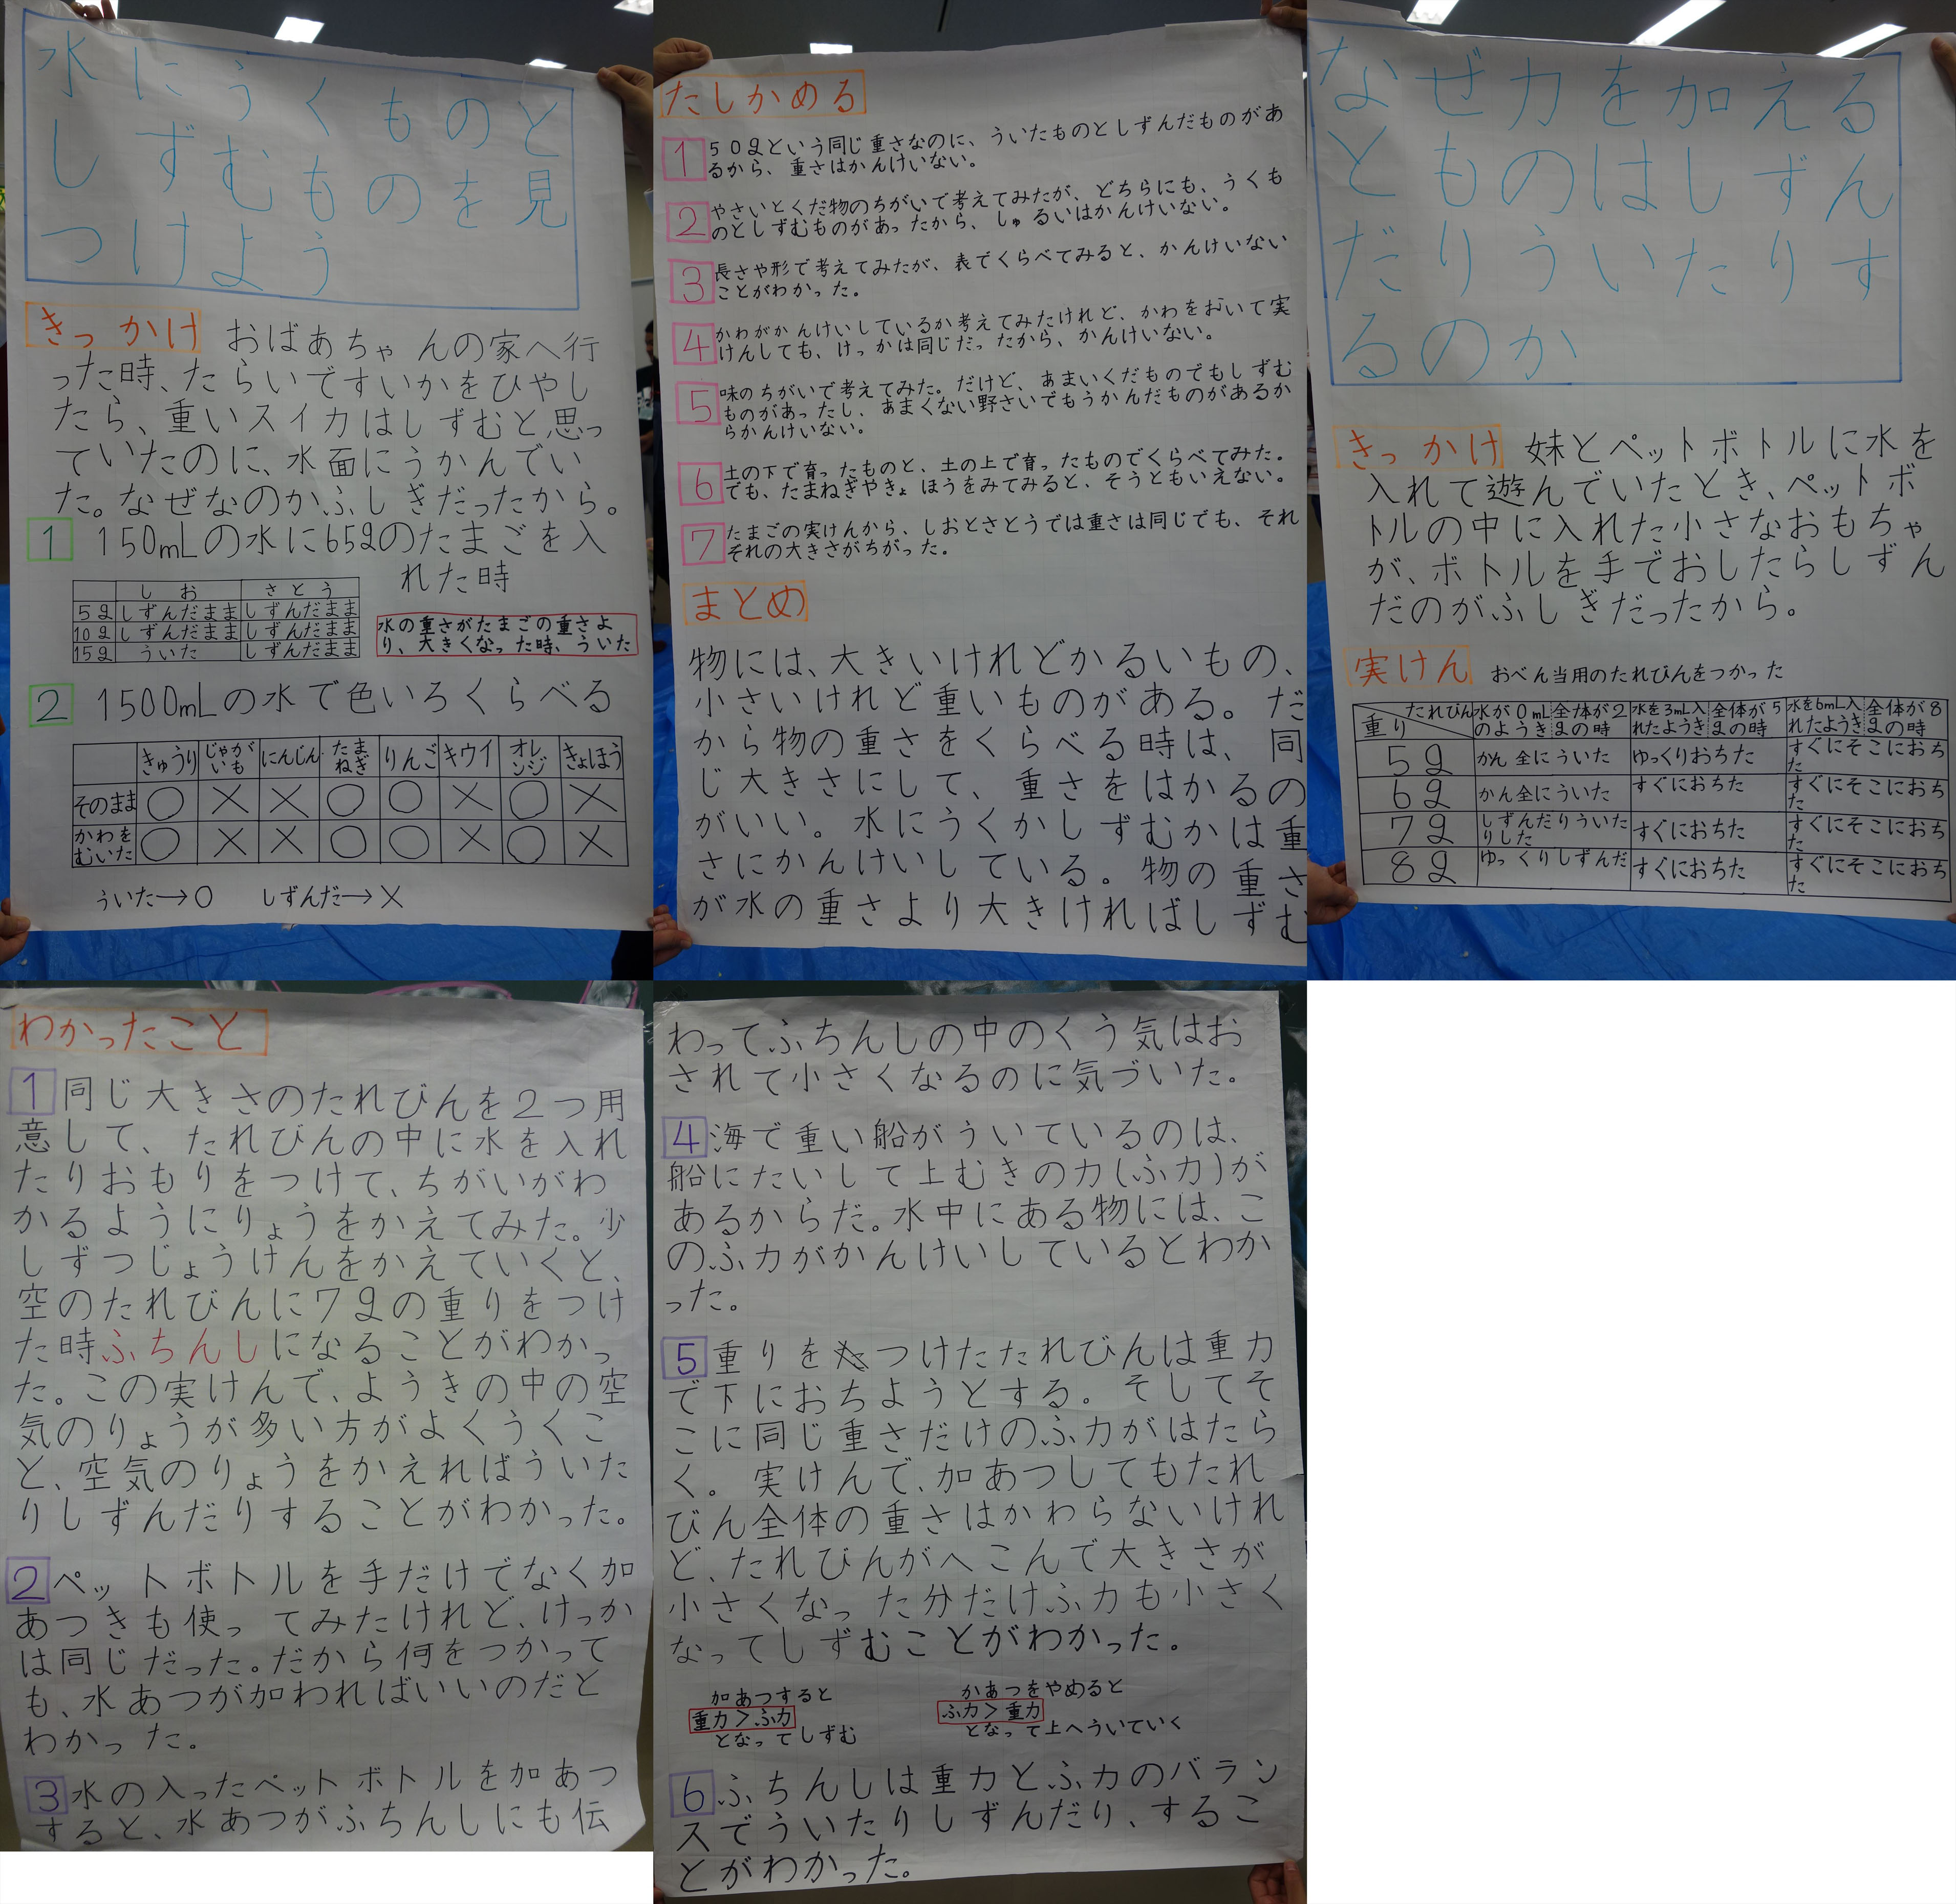 水にうくものと
しずむものを見
つけよう
きっかけ おばあちゃんの家へ行
った時、たらいですいかをひやし
たら、重いスイカはしずむと思っ
ていたのに、水面にうかんでい
た。なぜなのかふしぎだったから。
1 150mLの水に65gのたまごを入
れた時
しお さとう
5g しずんだまま しずんだまま
10g しずんだまま しずんだまま
15g ういた しずんだまま
水の重さがたまごの重さよ
り、大きくなった時、ういた
2 1500mLの水で色いろくらべる
きゅうり じゃがいも にんじん たまねぎ りんご キウイ オレンジ きょほう
そのまま ○ × × ○ ○ × ○ ×
かわをむいた ○ × × ○ ○ × ○ ×
ういた→○ しずんだ→×
たしかめる
1 50gという同じ重さなのに、ういたものとしずんだものがあ
るから、重さはかんけいない。
2 やさいとくだ物のちがいで考えてみたが、どちらにも、うくも
のとしずむものがあったから、しゅるいはかんけいない。
3 長さや形で考えてみたが、表でくらべてみると、かんけいない
ことがわかった。
4 かわがかんけいしているか考えてみたけれど、かわをおいて実
けんしても、けっかは同じだったから、かんけいない。
5 味のちがいで考えてみた。だけど、あまいくだものでもしずむ
ものがあったし、あまくない野さいでもうかんだものがあるか
らかんけいない。
6 土の下で育ったものと、土の上で育ったものでくらべてみた。
でも、たまねぎやきょほうをみてみると、そうともいえない。
7 たまごの実けんから、しおとさとうでは重さは同じでも、それ
ぞれの大きさがちがった。
まとめ
物には、大きいけれどかるいもの、
小さいけれど重いものがある。だ
から物の重さをくらべる時は、同
じ大きさにして、重さをはかるの
がいい。水にうくかしずむかは重
さにかんけいしている。物の重さ
が水の重さより大きければしずむ
なぜ力を加える
とものはしずん
だりういたりす
るのか
きっかけ 妹とペットボトルに水を
入れて遊んでいたとき、ペットボ
トルの中に入れた小さなおもちゃ
が、ボトルを手でおしたらしずん
だのがふしぎだったから。
実けん おべん当用のたれびんをつかった
たれびん 重り 水が0mLのようき 全体が2gの時 水を3mL入れたようき 全体が5gの時 水を6mL入れたようき 全体が8gの時
5g かん全にういた ゆっくりおちた すぐにそこにおちた
6g かん全にういた すぐにおちた すぐにそこにおちた
7g しずんだりういたりした すぐにおちた すぐにそこにおちた
8g ゆっくりしずんだ すぐにおちた すぐにそこにおちた
わかったこと
1 同じ大きさのたれびんを2つ用
意して、たれびんの中に水を入れ
たりおもりをつけて、ちがいがわ
かるようにりょうをかえてみた。少
しずつじょうけんをかえていくと、
空のたれびんに7gの重りをつけ
た時ふちんしになることがわかっ
た。この実けんで、ようきの中の空
気のりょうが多い方がよくうくこ
と、空気のりょうをかえればういた
りしずんだりすることがわかった。
2 ペットボトルを手だけでなく加
あつきも使ってみたけれど、けっか
は同じだった。だから何をつかって
も、水あつが加われればいいのだと
わかった。
3 水の入ったペットボトルを加あつ
すると、水あつがふちんしにも伝
わってふちんしの中のくう気はお
されて小さくなるのに気づいた。
4 海で重い船がういているのは、
船にたいして上むきの力(ふ力)が
あるからだ。水中にある物には、こ
のふ力がかんけいしているとわか
った。
5 重りをつけたたれびんは重力
で下におちようとする。そしてそ
こに同じ重さだけのふ力がはたら
く。実けんで、加あつしてもたれ
びん全体の重さはかわらないけれ
ど、たれびんがへこんで大きさが
小さくなった分だけふ力も小さく
なってしずむことがわかった。
加あつすると
重力>ふ力
となってしずむ
かあつをやめると
ふ力>重力
となって上へういていく
6 ふちんしは重力とふ力のバラン
スでういたりしずんだり、するこ
とがわかった。